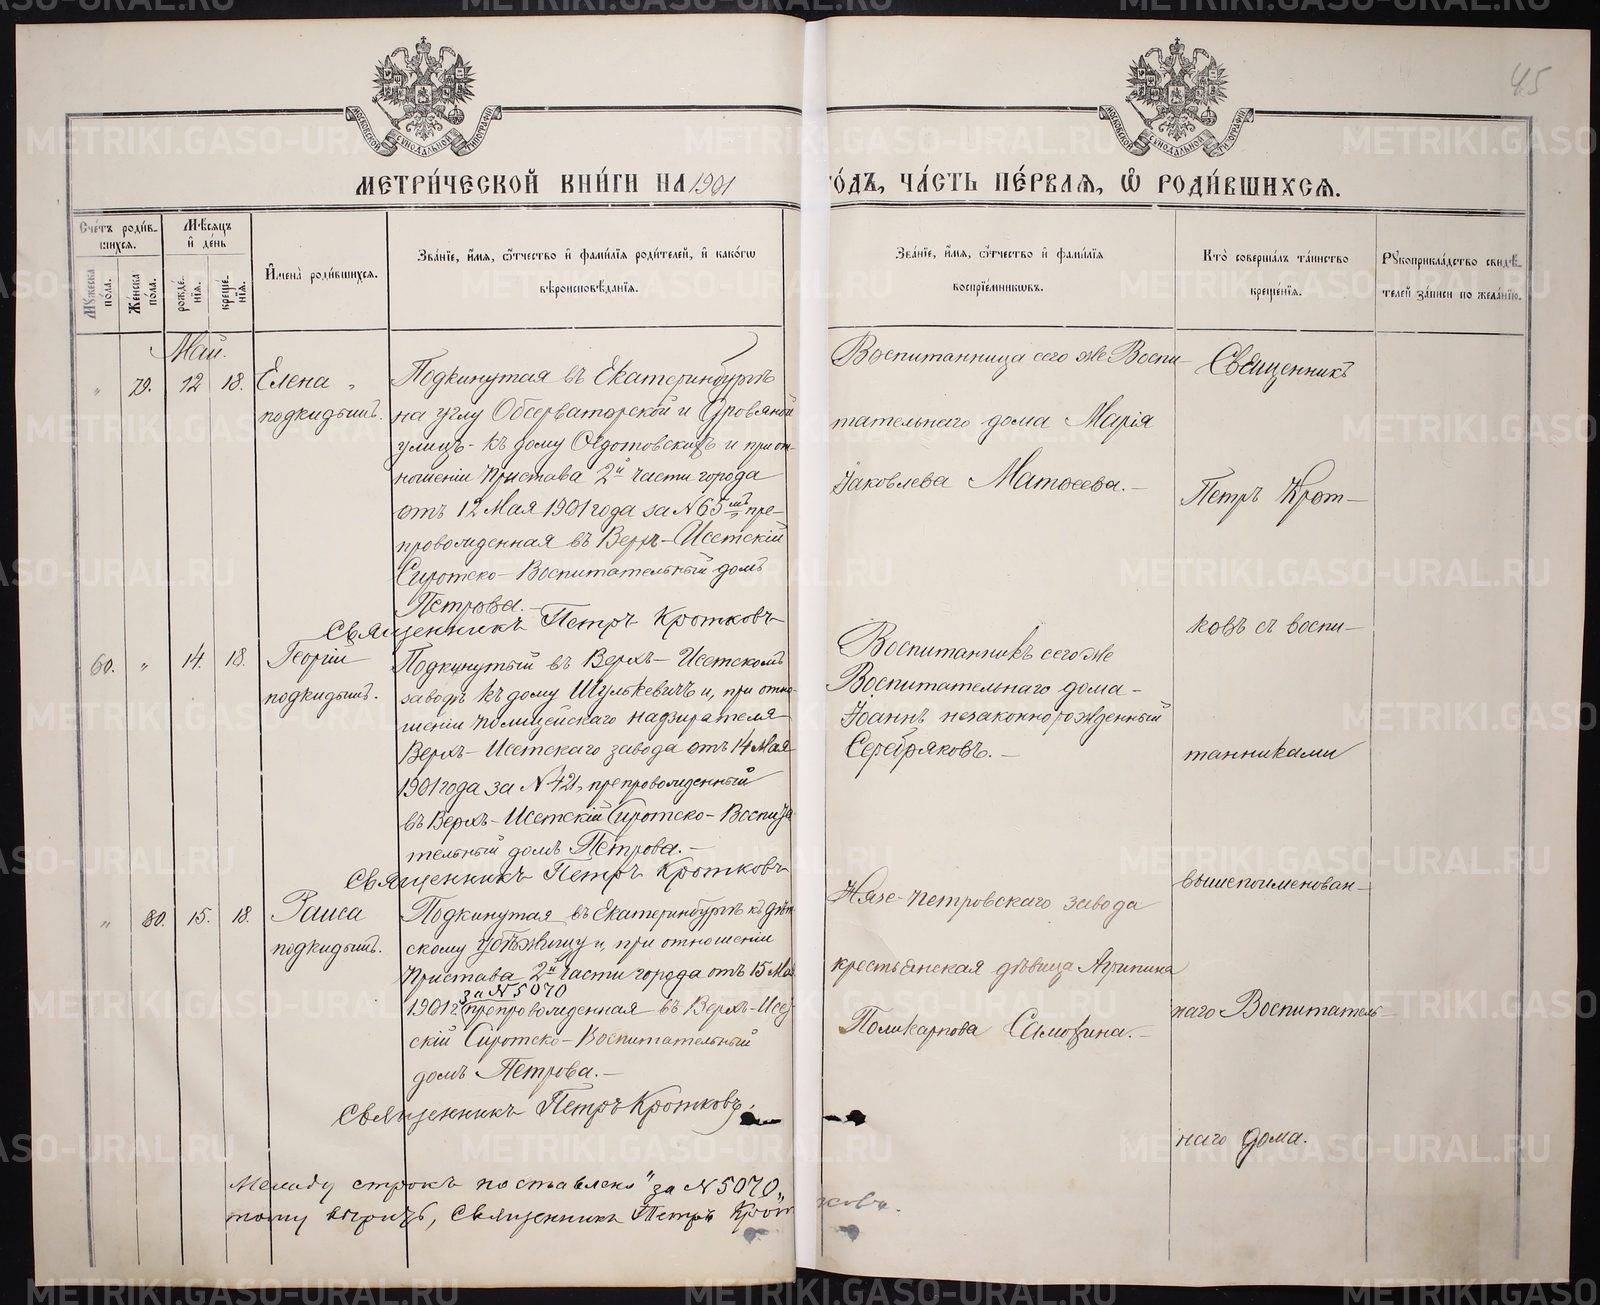 45
МОСКОВСКОЙ СѴНОДАЛЬНОЙ ТИПОГРАФІИ
МОСКОВСКОЙ СѴНОДАЛЬНОЙ ТИПОГРАФІИ
МЕТРИ́ЧЕСКОЙ КНИ́ГИ НА 1901 ГО́ДЪ, ЧА́СТЬ ПЕ́РВАЯ, Ѽ РОДИ́ВШИХСЯ.
Сче́тъ роди́вшихся.
Му́жеска по́ла.
Же́нска по́ла.
Мѣ́сяцъ и де́нь
рожде́нія.
креще́нія.
Имена̀ роди́вшихся.
Зва́ніе, и́мя, ѻ҆́тчество и фами́лія роди́телей, и како́гѡ
вѣроисповѣ́данія.
Зва́ніе, и́мя, ѻ҆́тчество и фами́лія
воспріе́мникѡвъ.
Кто̀ соверша́лъ та́инство
креще́нія.
Рꙋкоприкла́дство свидѣ́телей за́писи по жела́нію.
Май.
" 79. 12 18. Елена "
подкидышъ.
Подкинутая въ Екатеринбургѣ
на углу Обсерваторской и Дровяной
улицъ къ дому Ѳедотовскихъ и при от-
ношеніи Пристава 2й части города
отъ 12 Мая 1901 года за N 65мъ пре-
провожденная въ Верхъ-Исетскій
Сиротско-Воспитательный домъ
Петрова.-
Священникъ Петръ Кротковъ
Воспитанница сего же Воспи
тательнаго дома Марія
Іаковлева Матѳеева.-
60. " 14. 18. Георгій
подкидышъ.
Подкинутый въ Верхъ-Исетскомъ
заводѣ къ дому Шулькевичъ и, при отно-
шеніи полицейскаго надзирателя
Верхъ-Исетскаго завода отъ 14 Мая
1901 года за N 421, препровожденный
въ Верхъ-Исетскій Сиротско-Воспита
тельный домъ Петрова.-
Священникъ Петръ Кротковъ
Воспитанникъ сего же
Воспитательнаго дома-
Іоаннъ незаконнорожденный
Серебряковъ.-
" 80. 15. 18. Раиса
подкидышъ.
Подкинутая въ Екатеринбургѣ къ дѣт
скому убѣжищу и, при отношеніи
Пристава 2й части города отъ 15 Мая
за N 5070
1901 г. препровожденная въ Верхъ-Исет
скій Сиротско-Воспитательный
домъ Петрова.-
Священникъ Петръ Кротковъ.
Нязе-Петровскаго завода
крестьянская дѣвица Агрипина
Поликарпова Самохина.-
Священникъ
Петръ Крот-
ковъ съ воспи-
танниками
вышепоименован-
наго Воспитатель-
наго дома.
Между строкъ поставлено "за N 5070"
тому вѣрить, Священникъ Петръ Крот
ковъ.
METRIKI.GASO-URAL.RU